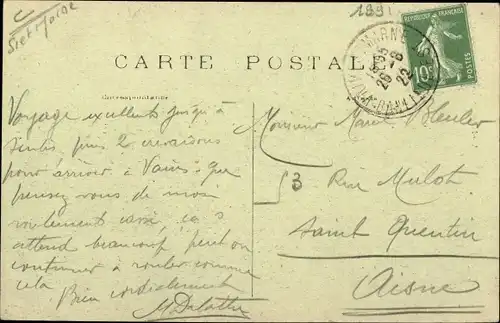 Sre et Marne
1891
CARTE POSTALE
Correspondance
RÉPUBLIQUE FRANÇAISE
10c
POSTES
MARNE
28-8
22
Voyage excellent jusqu'à
Senlis, puis 2 crevaisons
pour arriver à Vaires. que
pensez vous de mon
roulement carré, ça s
attend beaucoup, peut on
continuer à rouler comme
cela
Bien cordialement
MDelattre
Monsieur Marcel
53 Rue Mulot
Saint Quentin
Aisne